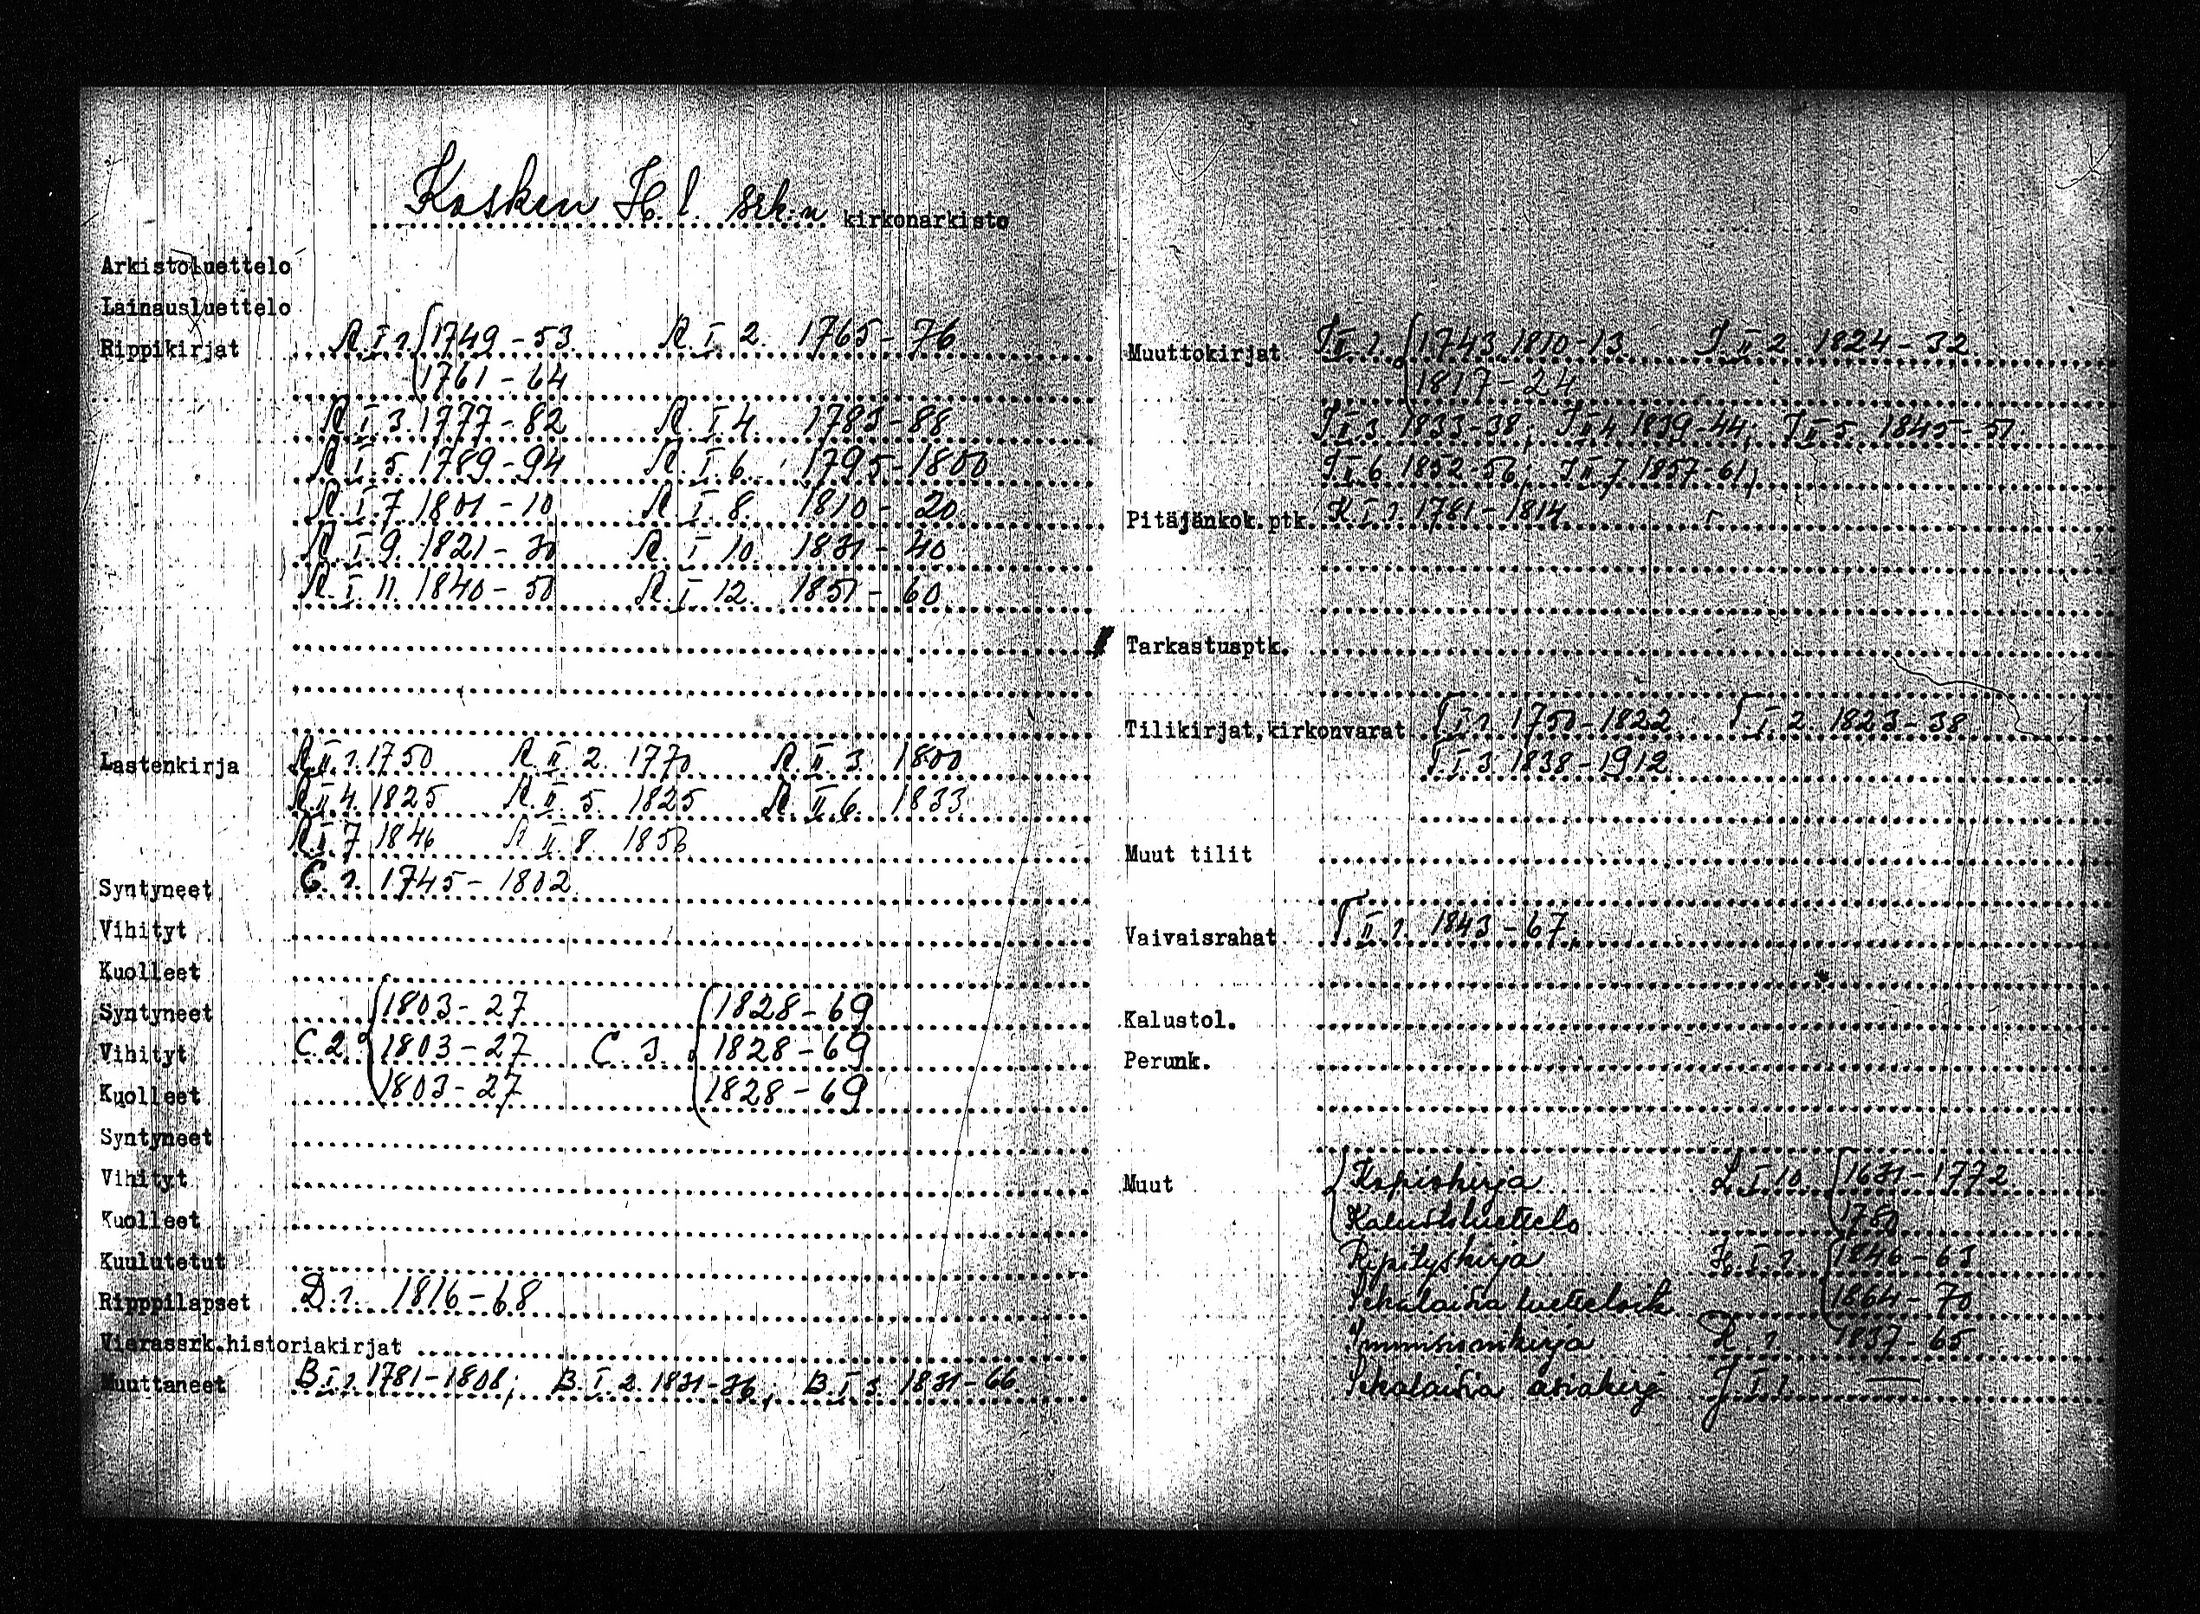 Kosken H. l. srk:n kirkonarkisto
Arkistoluettelo
Lainausluettelo
Rippikirjat R. I 1. 1749-53 R. I 2. 1765-76
1761-64
R. I. 3. 1777-82 R. I. 4. 1783-88
R. I. 5. 1789-94 R. I. 6. 1795-1800
R. I. 7 1801-10 R. I 8. 1810-20
R. I 9. 1821-30 R. I 10. 1831-40
R. I 11. 1840-50 R. I 12. 1851-60
Lastenkirja R. II. 1. 1750 R. II 2. 1770 R. II 3. 1800
R. II 4. 1825 R. II. 5. 1825 R. II 6. 1833
R. II 7 1846 R. II. 8. 1856
Syntyneet C. 1. 1745-1802
Vihityt
Kuolleet
Syntyneet 1803-27 1828-69
Vihityt C. 2. 1803-27 C. 3. 1828-69
Kuolleet 1803-27 1828-69
Syntyneet
Vihityt
Kuolleet
Kuulutetut
Ripppilapset D. 1. 1816-68
Vierassrk.historiakirjat
Muuttaneet B. I. 1. 1781-1808; B. I 2. 1831-36; B. I 3. 1831-66
Muuttokirjat J II 1. 1743. 1810-13 J II 2 1824-32
1817-24
J II 3 1833-38; J II 4 1839-44; J II 5. 1845-51
J II 6 1852-56; J II 7 1857-61;
Pitäjänkok.ptk. K I 1. 1781-1814
Tarkastusptk.
Tilikirjat,kirkonvarat T I 1. 1750-1822 T. I. 2. 1823-38
T. I. 3 1838-1912
Muut tilit
Vaivaisrahat T II 1. 1843-67;
Kalustol.
Perunk.
Muut Kopiokirja I 10. 1631-1772
Kalustoluettelo 1750
Ripityskirja H. I. 1. 1846-63
Sekalaisia luetteloita 1864-70
Immissionikirja 1. 1837-65
Sekalaisia asiakirj. J I 1.